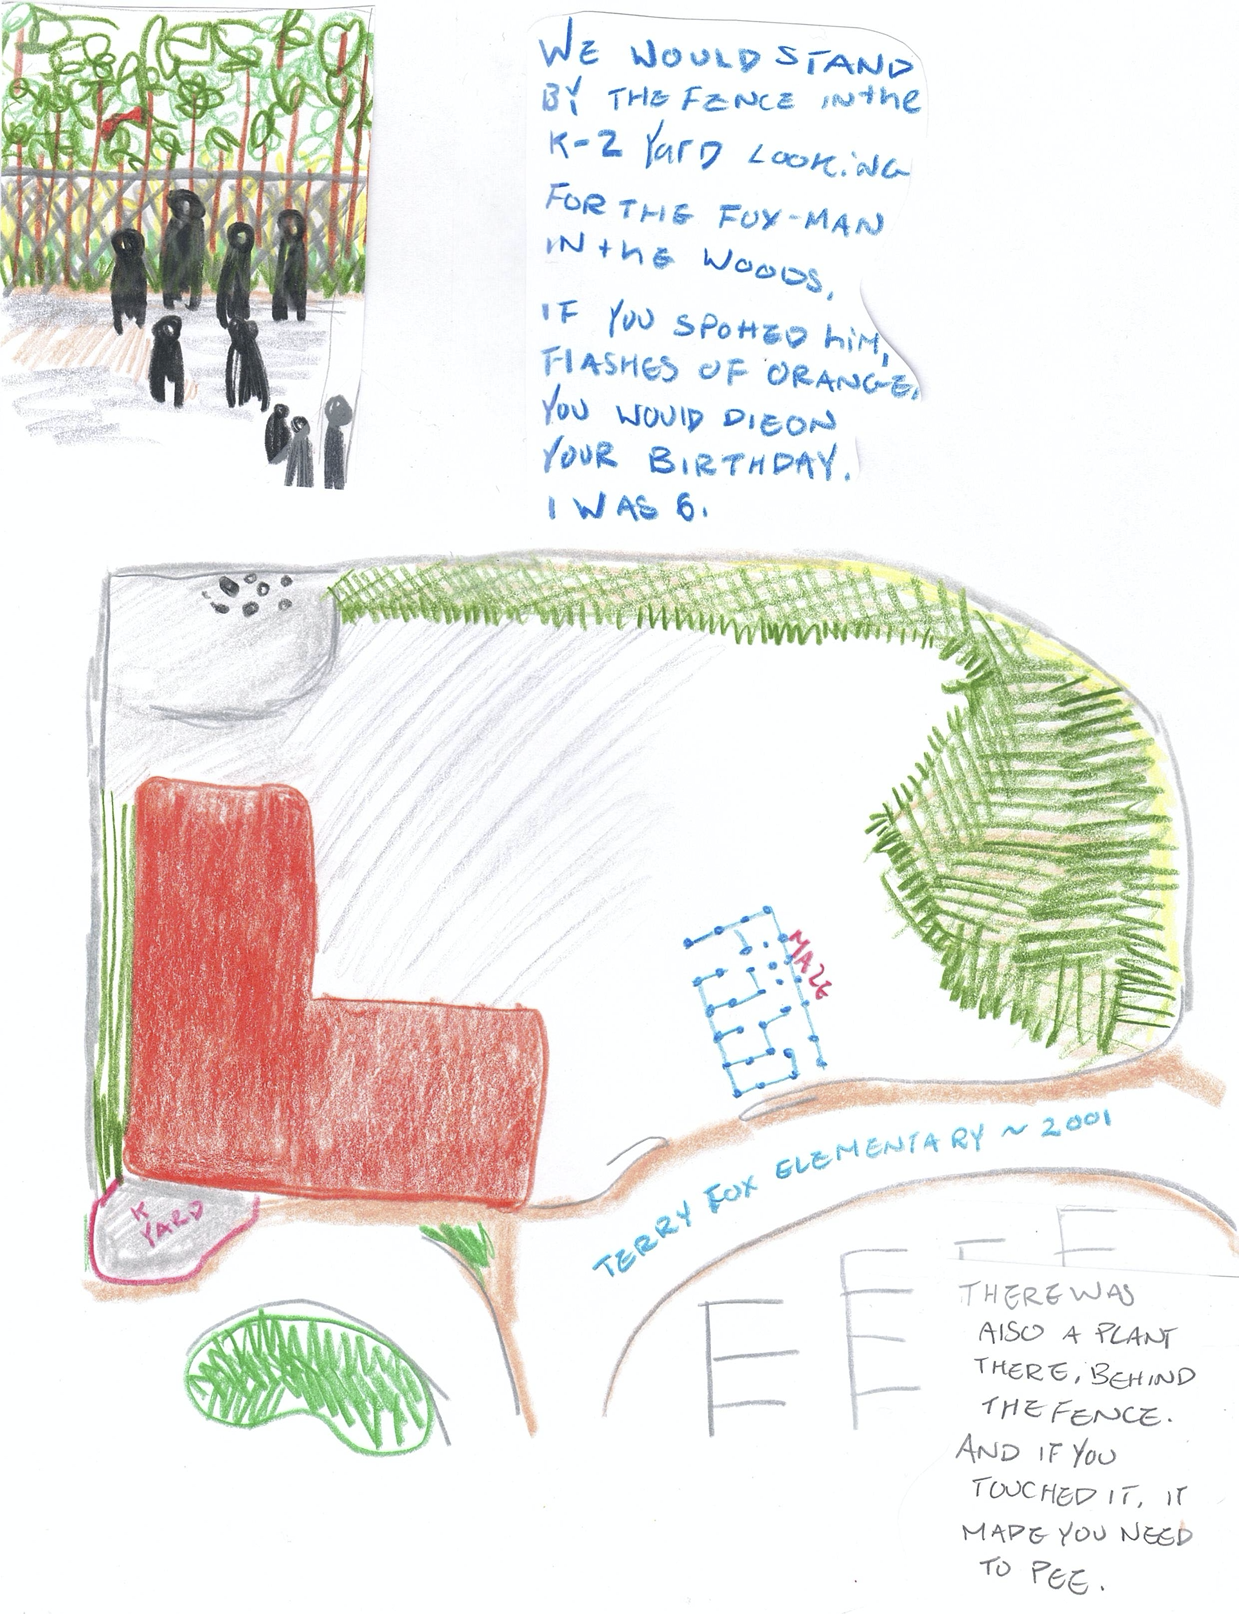 WE WOULD STAND
BY THE FENCE IN the
K-2 YARD LOOKING
FOR THE FOX-MAN
IN the WOODS.
IF YOU SPOTTED HIM,
FLASHES OF ORANGE,
YOU WOULD DIE ON
YOUR BIRTHDAY.
I WAS 6.
MAZE
K
YARD
TERRY FOX ELEMENTARY ~ 2001
THERE WAS
ALSO A PLANT
THERE, BEHIND
THE FENCE.
AND IF YOU
TOUCHED IT, IT
MADE YOU NEED
TO PEE.